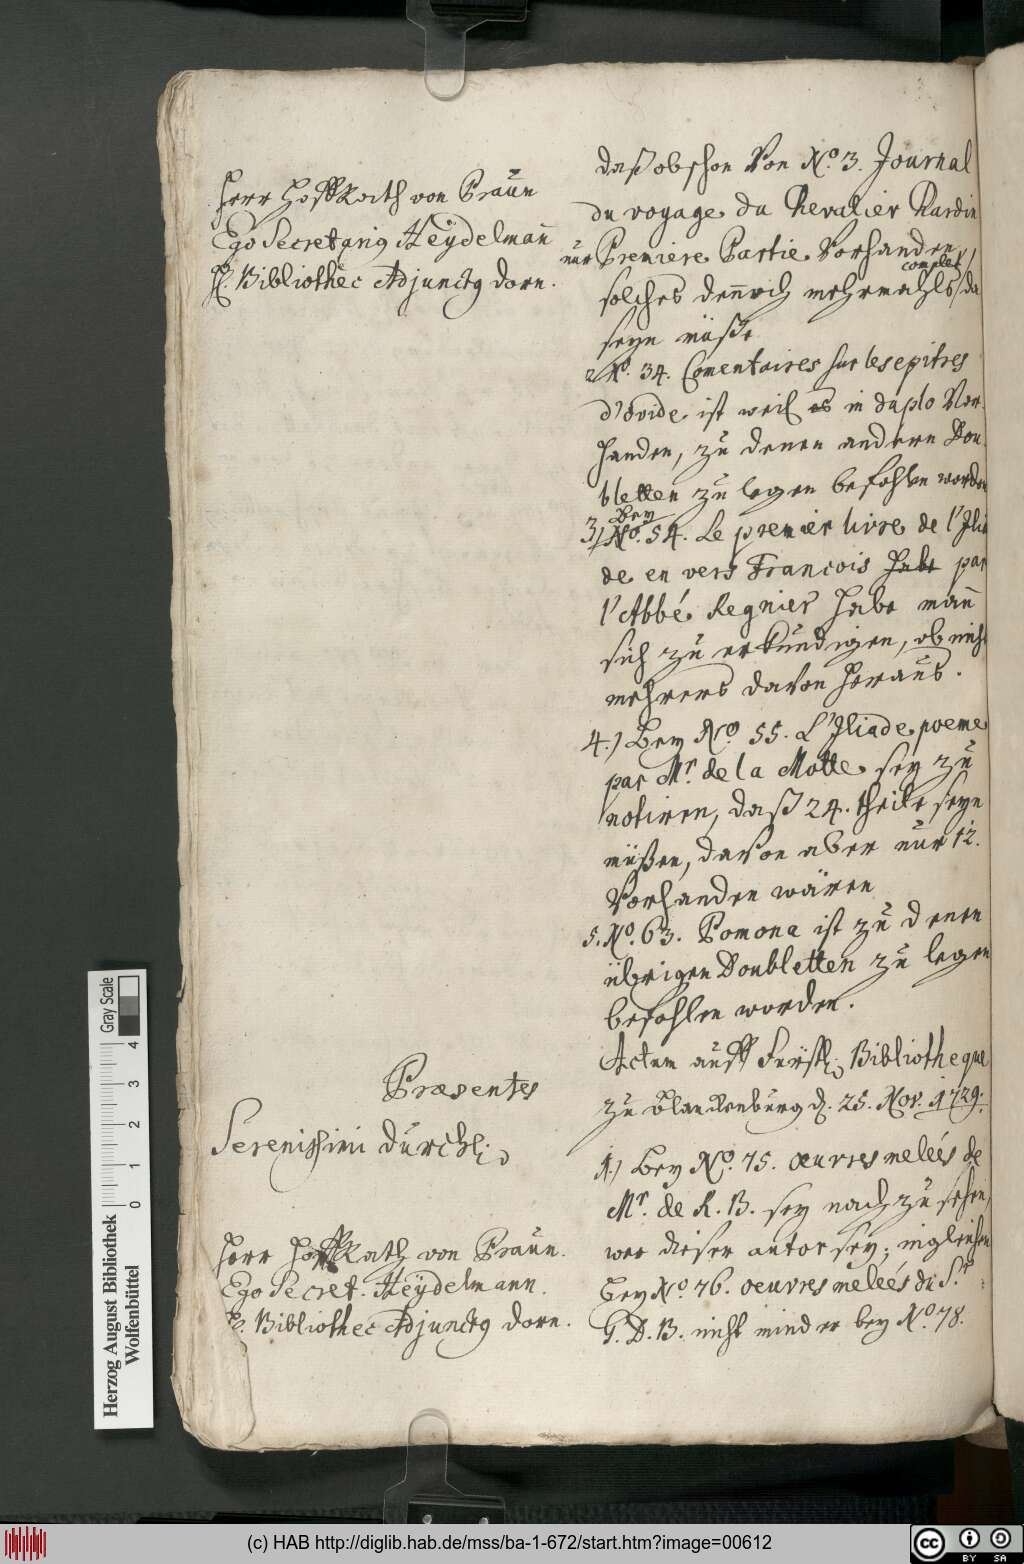 Herr HoffRath von Praün
Ego Secretarius Heÿdelmañ
H. Bibliothec Adjunctus Dorn.
daß obschon Von No. 3. Journal
du voyage du Chevalier Chardin
nur Premiere Partie Vorhanden,
complet
solches dennoch mehrmahls da
seyn müße
2 No. 34. Comentaires sur les epitres
d'Ovide ist weil es in duplo Vor-
handen, zu denen andern Dou-
bletten zu legen befohlen worden
Bey
3) No. 54. Le premier livre de l'Ilia
de en vers Francois habe par
l'Abbé Regnier habe mañ
sich zu erkundigen, ob nicht
mehrers davon heraus.
4.) Bey No. 55. L'Iliade poeme
par Mr. de la Motte sey zu
notiren, daß 24. theile seyn
müßen, davon aber nur 12.
Vorhanden wären
5. No. 63. Pomona ist zu denen
übrigen Doubletten zu legen
befohlen worden.
Actum auff Fürstl. Bibliotheque
zu Blanckenburg d. 25. Nov. 1729.
Præsentes
Serenissimi Durchl.
1.) Bey No. 75. œuvres melées de
Mr. de R. B. sey nachzusehen,
wer dieser autor sey; ingleichen
bey No. 76. oeuvres melées du Sr.
G. D. B. nicht minder bey No. 78.
Herr HoffRath von Praün.
Ego Secret. Heÿdelmann.
H. Bibliothec Adjunctus Dorn.
Gray Scale
0 1 2 3 4
Herzog August Bibliothek
Wolfenbüttel
(c) HAB http://diglib.hab.de/mss/ba-1-672/start.htm?image=00612
cc BY SA